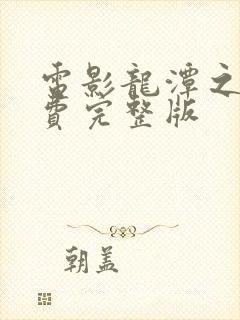 電影龍潭之
費完整版
朝盖